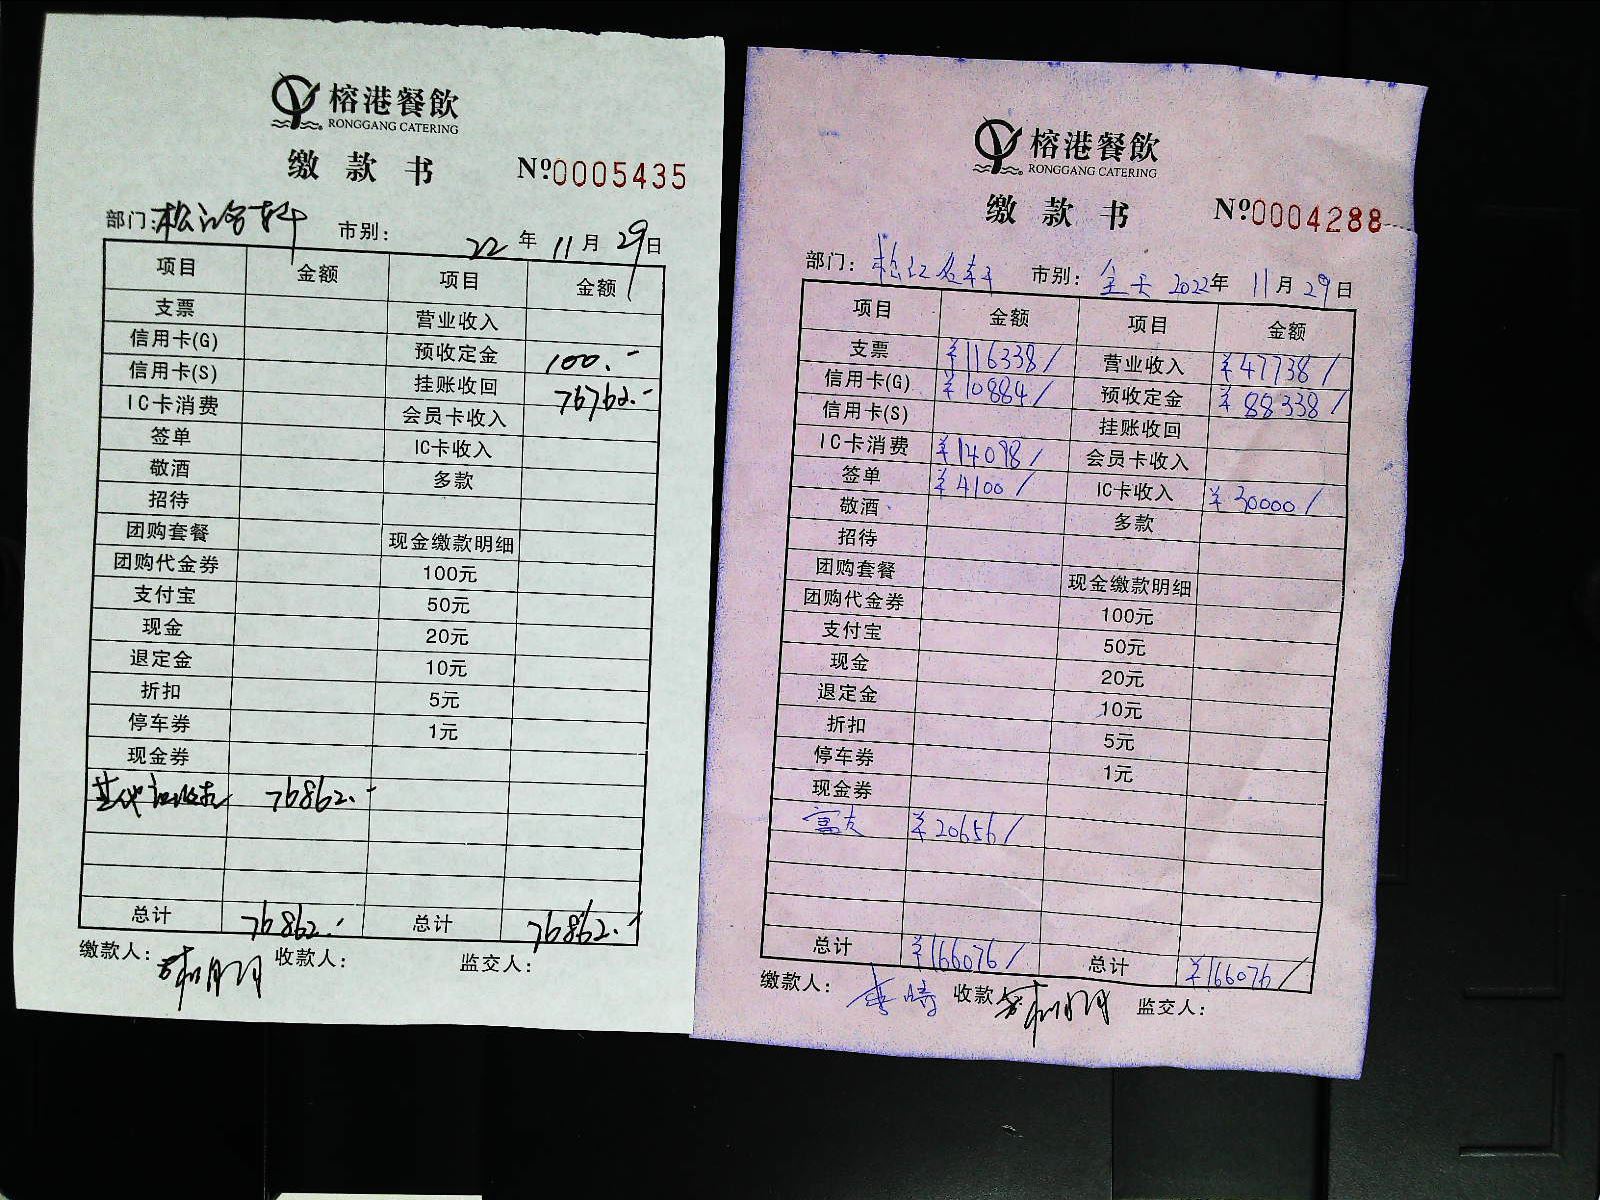 榕港餐飲
RONGGANG CATERING
缴款书 №0005435
部门: 松江名轩 市别: 22年11月29日
项目 金额 项目 金额
支票 营业收入
信用卡(G) 预收定金 100.-
信用卡(S) 挂账收回 76762.-
IC卡消费 会员卡收入
签单 IC卡收入
敬酒 多款
招待
团购套餐 现金缴款明细
团购代金券 100元
支付宝 50元
现金 20元
退定金 10元
折扣 5元
停车券 1元
现金券
76862.-
总计 76862.- 总计 76862.-
缴款人: 收款人: 监交人:
榕港餐飲
RONGGANG CATERING
缴款书 №0004288
部门: 松江名轩 市别: 全天 2022年11月29日
项目 金额 项目 金额
支票 ¥116338/ 营业收入 ¥47738/
信用卡(G) ¥10884/ 预收定金 ¥88338/
信用卡(S) 挂账收回
IC卡消费 ¥14098/ 会员卡收入
签单 ¥4100/ IC卡收入 ¥30000/
敬酒 多款
招待
团购套餐 现金缴款明细
团购代金券 100元
支付宝 50元
现金 20元
退定金 10元
折扣 5元
停车券 1元
现金券
富友 ¥20656/
总计 ¥166076/ 总计 ¥166076/
缴款人: 收款人: 监交人: